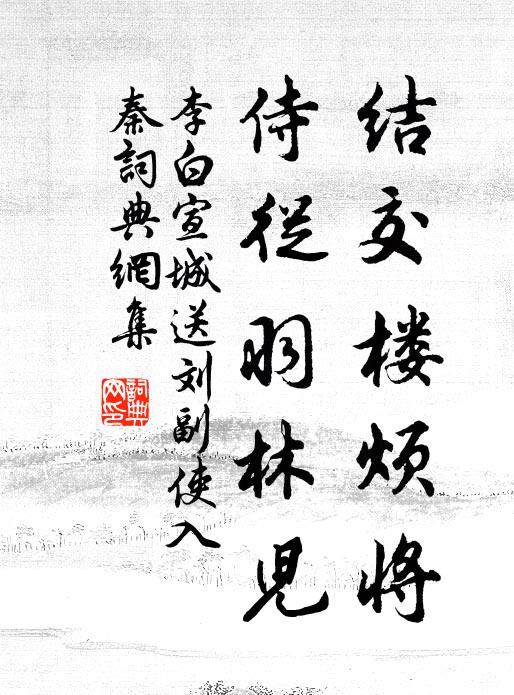 结交楼烦将
侍從羽林児
李白宣城送刘副使入
秦詞典網集
詞典
网印